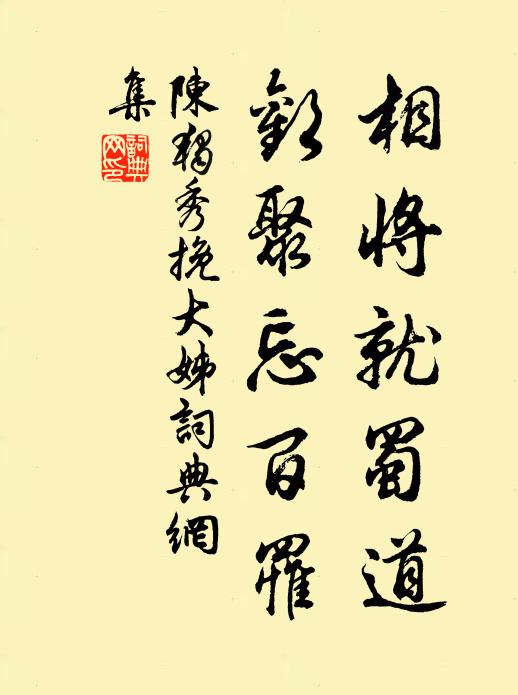 相將就蜀道
歡聚忘百罹
陳獨秀挽大姊詞典網
集
詞典
網印